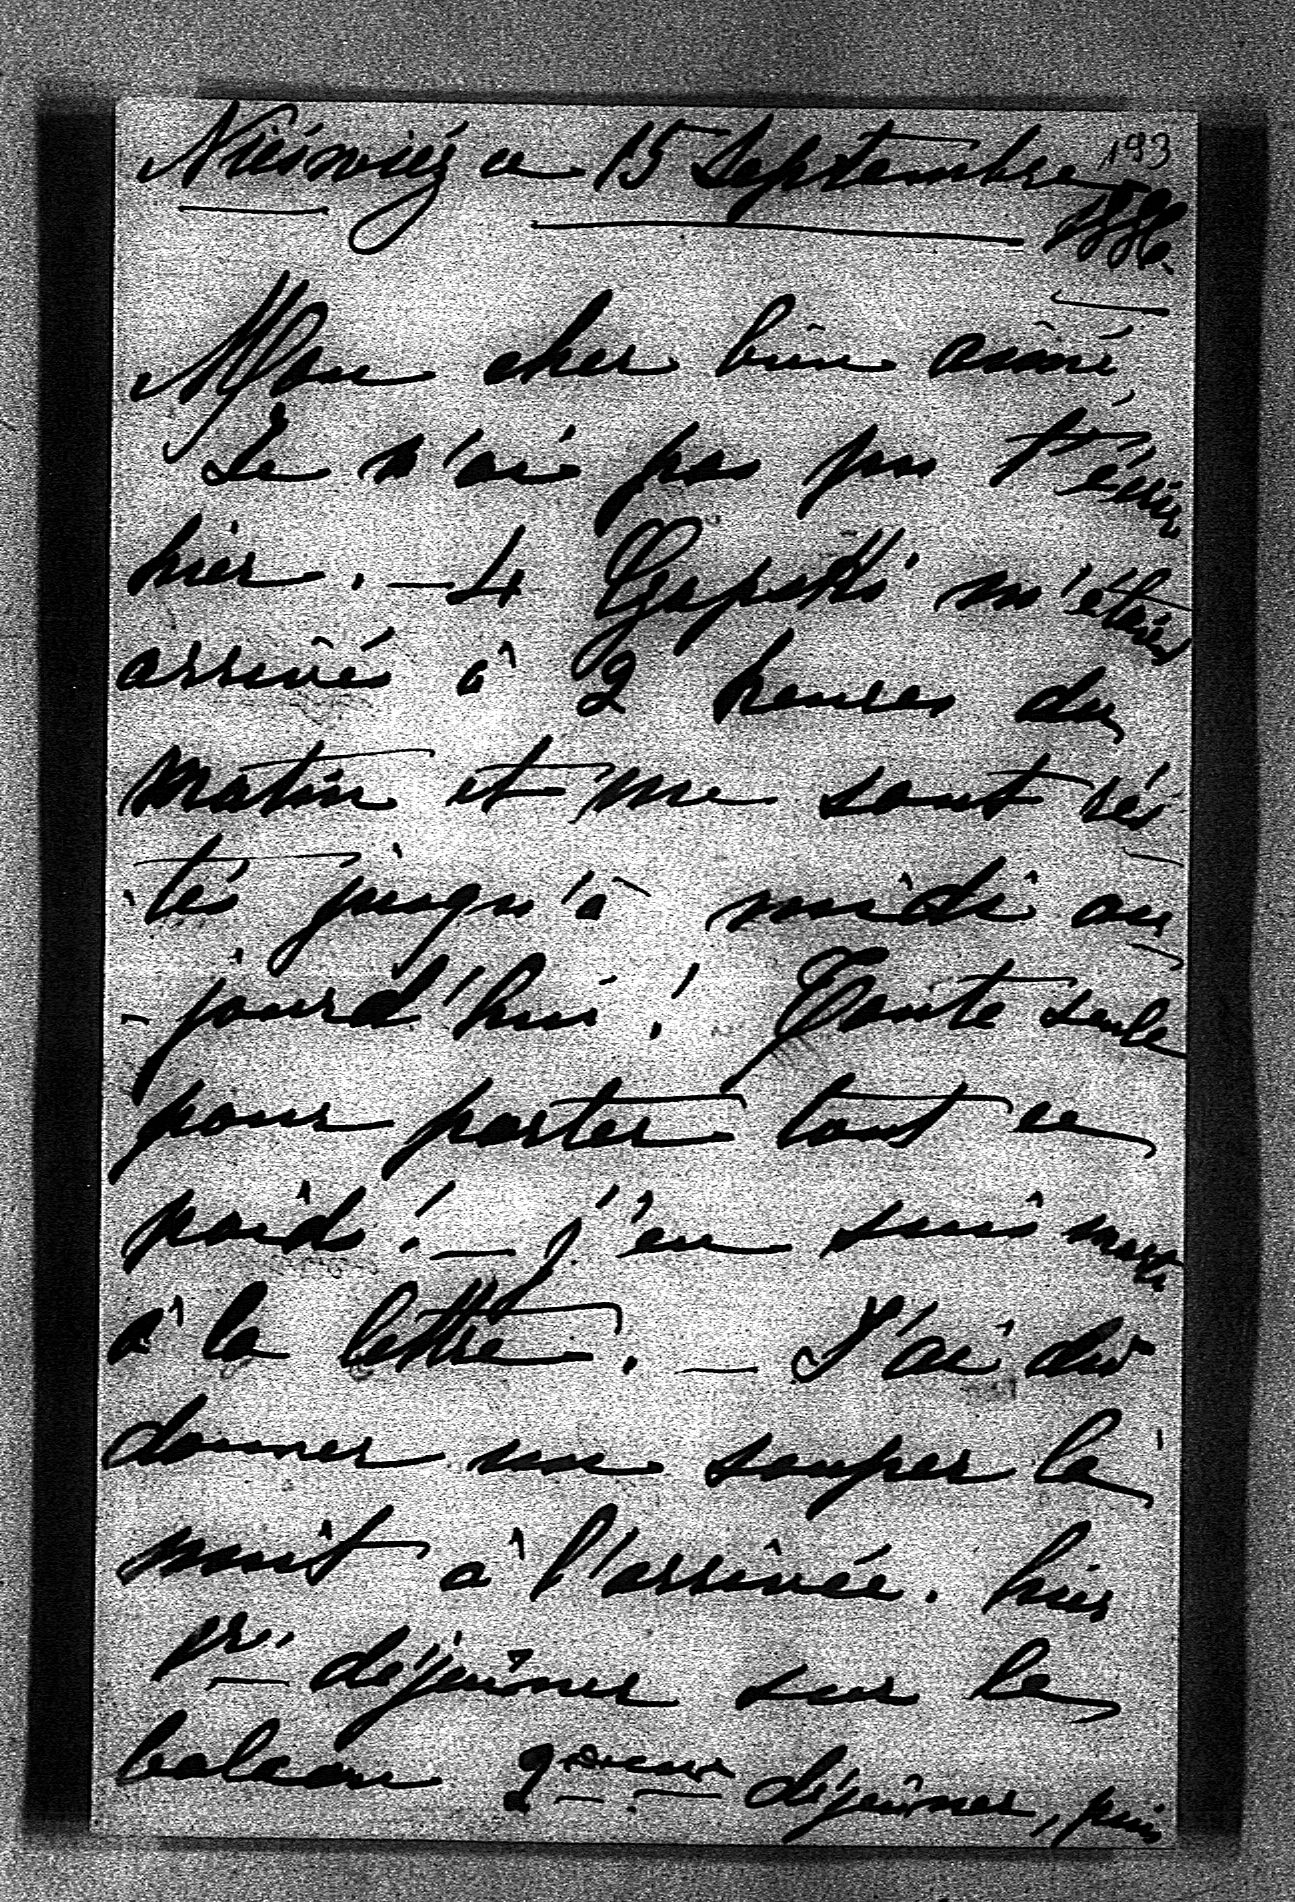 193
Nieśwież ce 15 Septembre
1886.
Mon cher bien aimé,
Je n'ai pas pu t'écrire
hier. — 4 m'étaient
arrivés à 2 heures du
matin et me sont rés
-tés jusqu'à midi au
-jourd'hui! Toute seule
pour porter tout ce
poids! — j'en suis morte
à la lettre. — J'ai dû
donner un souper la
nuit à l'arrivée. hier
1r. déjeûner sur le
balcon 2 déjeûner, puis